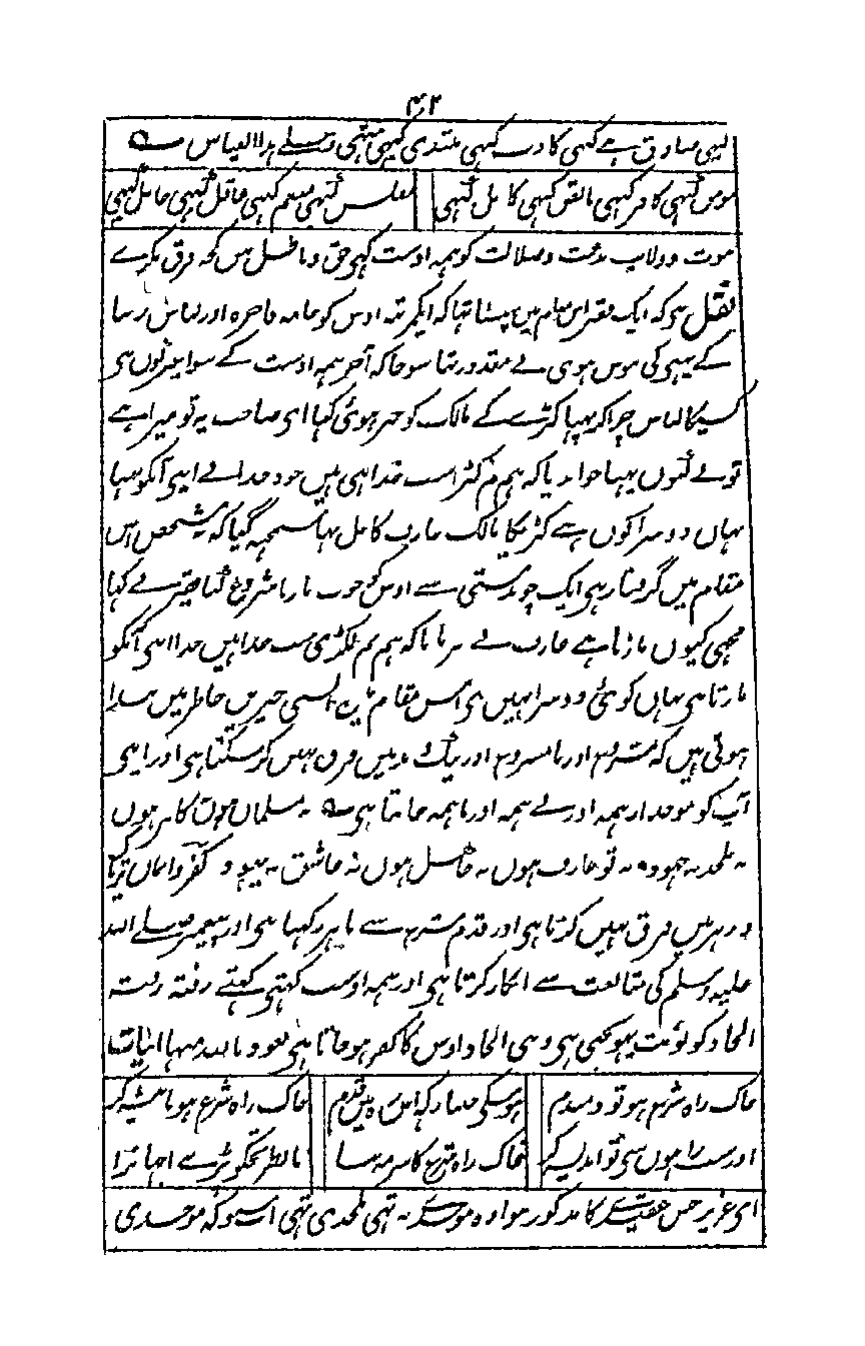 ۴۲
کہی صادق ہے کہی کاذب کہی مبتدی کہی منتہی
مومن کہی کافر کہی ناقص کہی کامل کہی مفلس کہی منعم کہی عاقل کہی جاہل کہی
بدعت و ضلالت کو ہمہ اوست کہی حق و باطل میں کچھ فرق نکرے
نقل ہی کہ ایک فقیر اس مقام میں تہا کہ ایکمرتبہ اوس کو جامہ فاخرہ اور لباس زیبا
کے کی ہوس ہوی بے مقدور تہا سوچا کہ آخر ہمہ اوست کے سوا
کسیکا لباس چرا کر پہنا کپڑے کے مالک کو خبر ہوئی کہا ای صاحب یہ تو میرا ہے
تو نے کیوں پہنا جواب دیا کہ ہم تم کپڑا سب خدا ہی ہیں خود خدا نے اپنی آپکو پہنا
یہاں دوسرا کون ہے کپڑیکا مالک عارف کامل تہا سمجہہ گیا کہ یہ شخص اس
مقام میں گرفتار ہی ایک چوبدستی سے اوس کو خوب مارنا شروع کیا فقیر نے کہا
مجھی کیوں مارتا ہے عارف نے فرمایا کہ ہم تم لکڑی سب خدا ہیں خدا اپنی آپکو
مارتا ہی یہاں کوئی دوسرا نہیں ہی اس مقام میں ایسی چیزیں خاطر میں پیدا
ہوتی ہیں کہ مشروع اور نامشروع اور نیک و بد میں فرق نہیں کر سکتا ہی اور اپنی
آپ کو موحد اور ہمہ اور بے ہمہ اور باہمہ جانتا ہی نہ مسلمان ہوں نہ کافر ہوں
نہ ملحد نہ جہود نہ تو عارف ہوں نہ فاضل ہوں نہ عاشق نہ و کفر و ایمان
و زہر میں فرق نہیں کرتا ہی اور قدم شرع سے باہر رکہتا ہی اور پیغمبر صلے اللہ
علیہ وسلم کی متابعت سے انکار کرتا ہی اور ہمہ اوست کہتی کہتے رفتہ رفتہ
الحاد کو نوبت پہونچتی ہی وہی الحاد اوس کا کفر ہو جاتا ہی نعوذ باللہ منہا
خاک راہ شرع ہو تو دمبدم ہو سکی جلد رکہہ اس رہ میں قدم خاک راہ شرع ہونا ہمیشہ گر
خاک راہ شرع کا سرمہ
ای عزیز جس عقیدے کا مذکور ہوا وہ موحدی نہ تہی ملحدی تہی اسلیوکہ موحدی